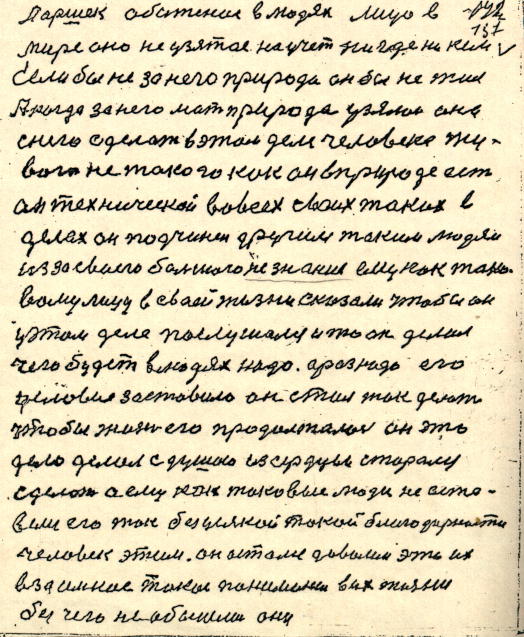 Паршек обиженое в людях лицо в 192
мире оно не узятае на учет ни где ни кем 137
Если бы не за него природа он бы не жил
А когда за него мат природа узялас она
с него сделат в этом деле человека жи-
вого не такого как он в природе ест
он технической во всех своих таких в
делах он подчинен другим таким людям
из за своего болшого незнание ему как тако-
вому лицу в своей жизни сказали чтобы он
у этом деле послушался и то он делал
чего будет в людях надо. а раз надо его
условие заставило он стал так делат
чтобы жизн его продолжалас он это
дело делал с душою из сердцем старался
сделат а ему как таковые люди не оста-
вели его так без всякой такой благодарности
человек этим. он остался доволин эта их
взаимное такое понимание в их жизни
без чего не обошлис они